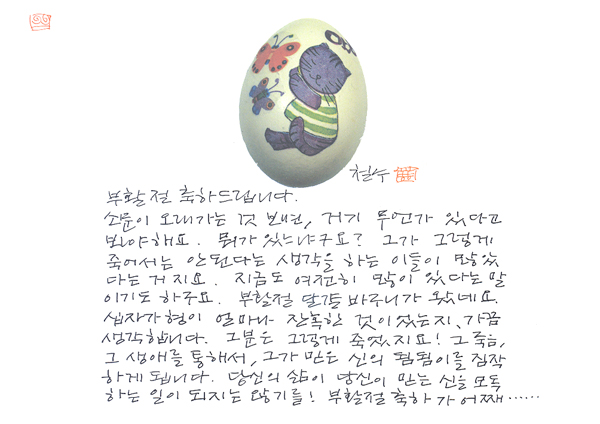 철수
부활절 축하드립니다.
소문이 오래가는 것 보면, 거기 무언가 있다고
봐야해요. 뭐가 있느냐구요? 그가 그렇게
죽어서는 안된다는 생각을 하는 이들이 많았
다는 거지요. 지금도 여전히 많이 있다는 말
이기도 하구요. 부활절 달걀 바구니가 왔네요.
십자가형이 얼마나 잔혹한 것이었는지, 가끔
생각합니다. 그분은 그렇게 죽었지요! 그 죽음,
그 생애를 통해서, 그가 만난 신의 됨됨이를 짐작
하게 됩니다. 당신의 삶이 당신이 만난 신을 모독
하는 일이 되지는 않기를! 부활절 축하가 어째……